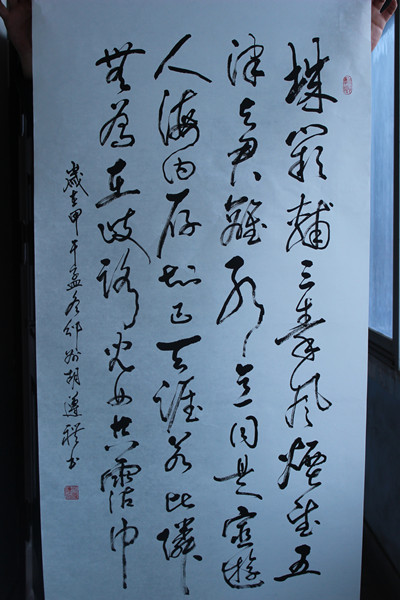 城闕輔三秦風煙望五
津与君離別意同是宦遊
人海内存知己天涯若比隣
無為在歧路兒女共霑巾
歲在甲午孟冬 州胡遵 书